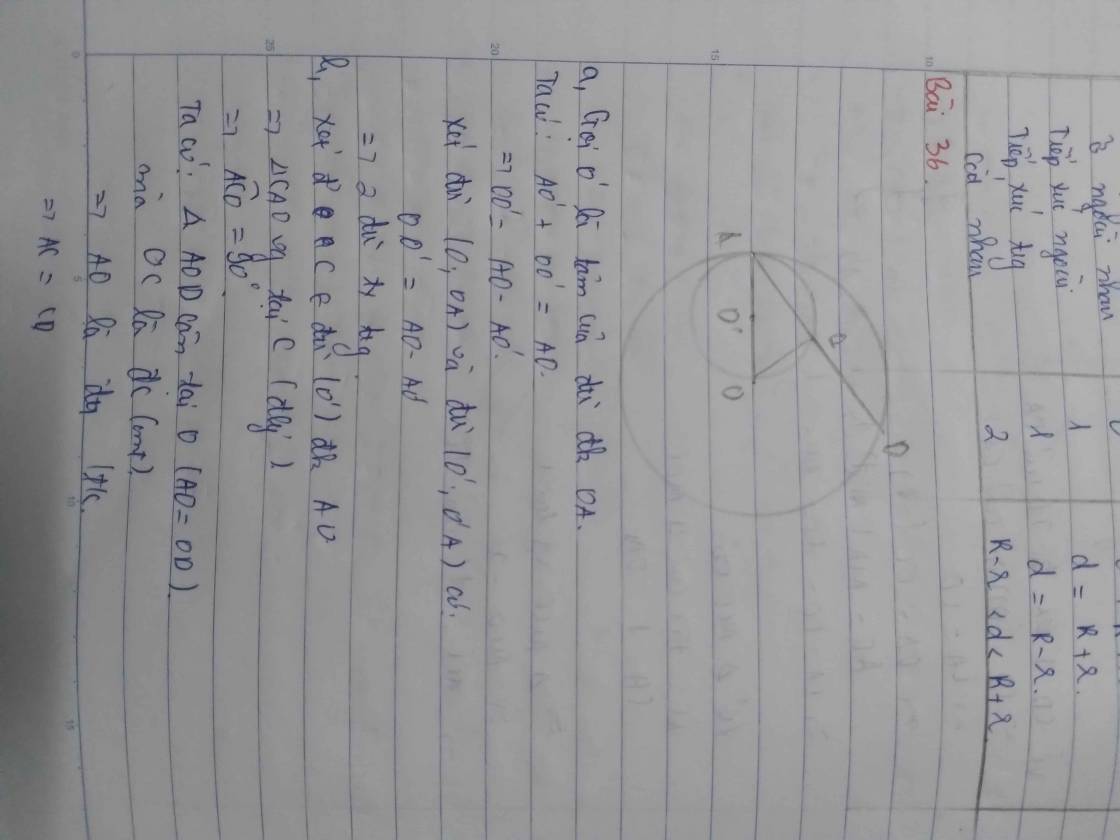 ở ngoài nhau
Tiếp xúc ngoài 1 d = R + r.
Tiếp xúc tg 1 d = R - r.
Cắt nhau 2 R - r < d < R + r
Bài 36.
A O' O C D
a, Gọi O' là tâm của đtr đk OA.
Ta có: AO' + OO' = AO.
=> OO' = AO - AO'.
Xét đtr (O, OA) và đtr (O', O'A) có.
OO' = AO - AO'
=> 2 đtr tx tg
b, xét A C ∈ đtr (O') đk AO
=> ΔCAO vg tại C (đlý)
=> ACO = 90°
Ta có: Δ AOD cân tại O (AO = OD).
mà OC là đc (cmt).
=> AO là đg
=> AC = CD
25 20 15 10
0 5 10 15